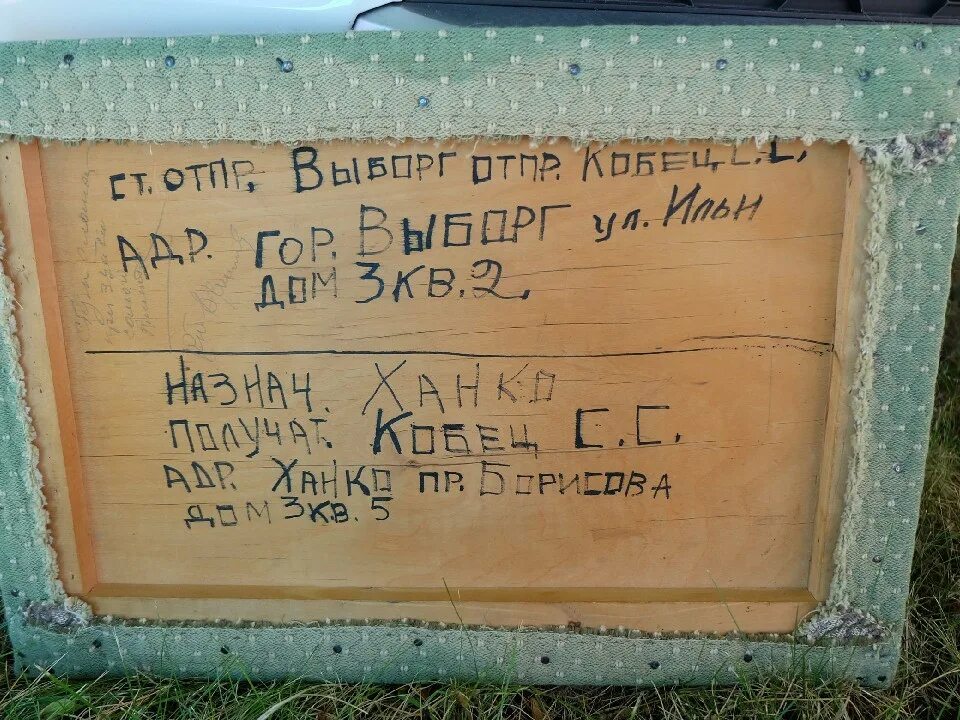 ст. отпр. Выборг отпр. Кобец С.С.
Адр. гор. Выборг ул. Ильи
дом 3 кв. 2.
Назнач. Ханко
Получат. Кобец С.С.
Адр. Ханко пр. Борисова
дом 3 кв. 5